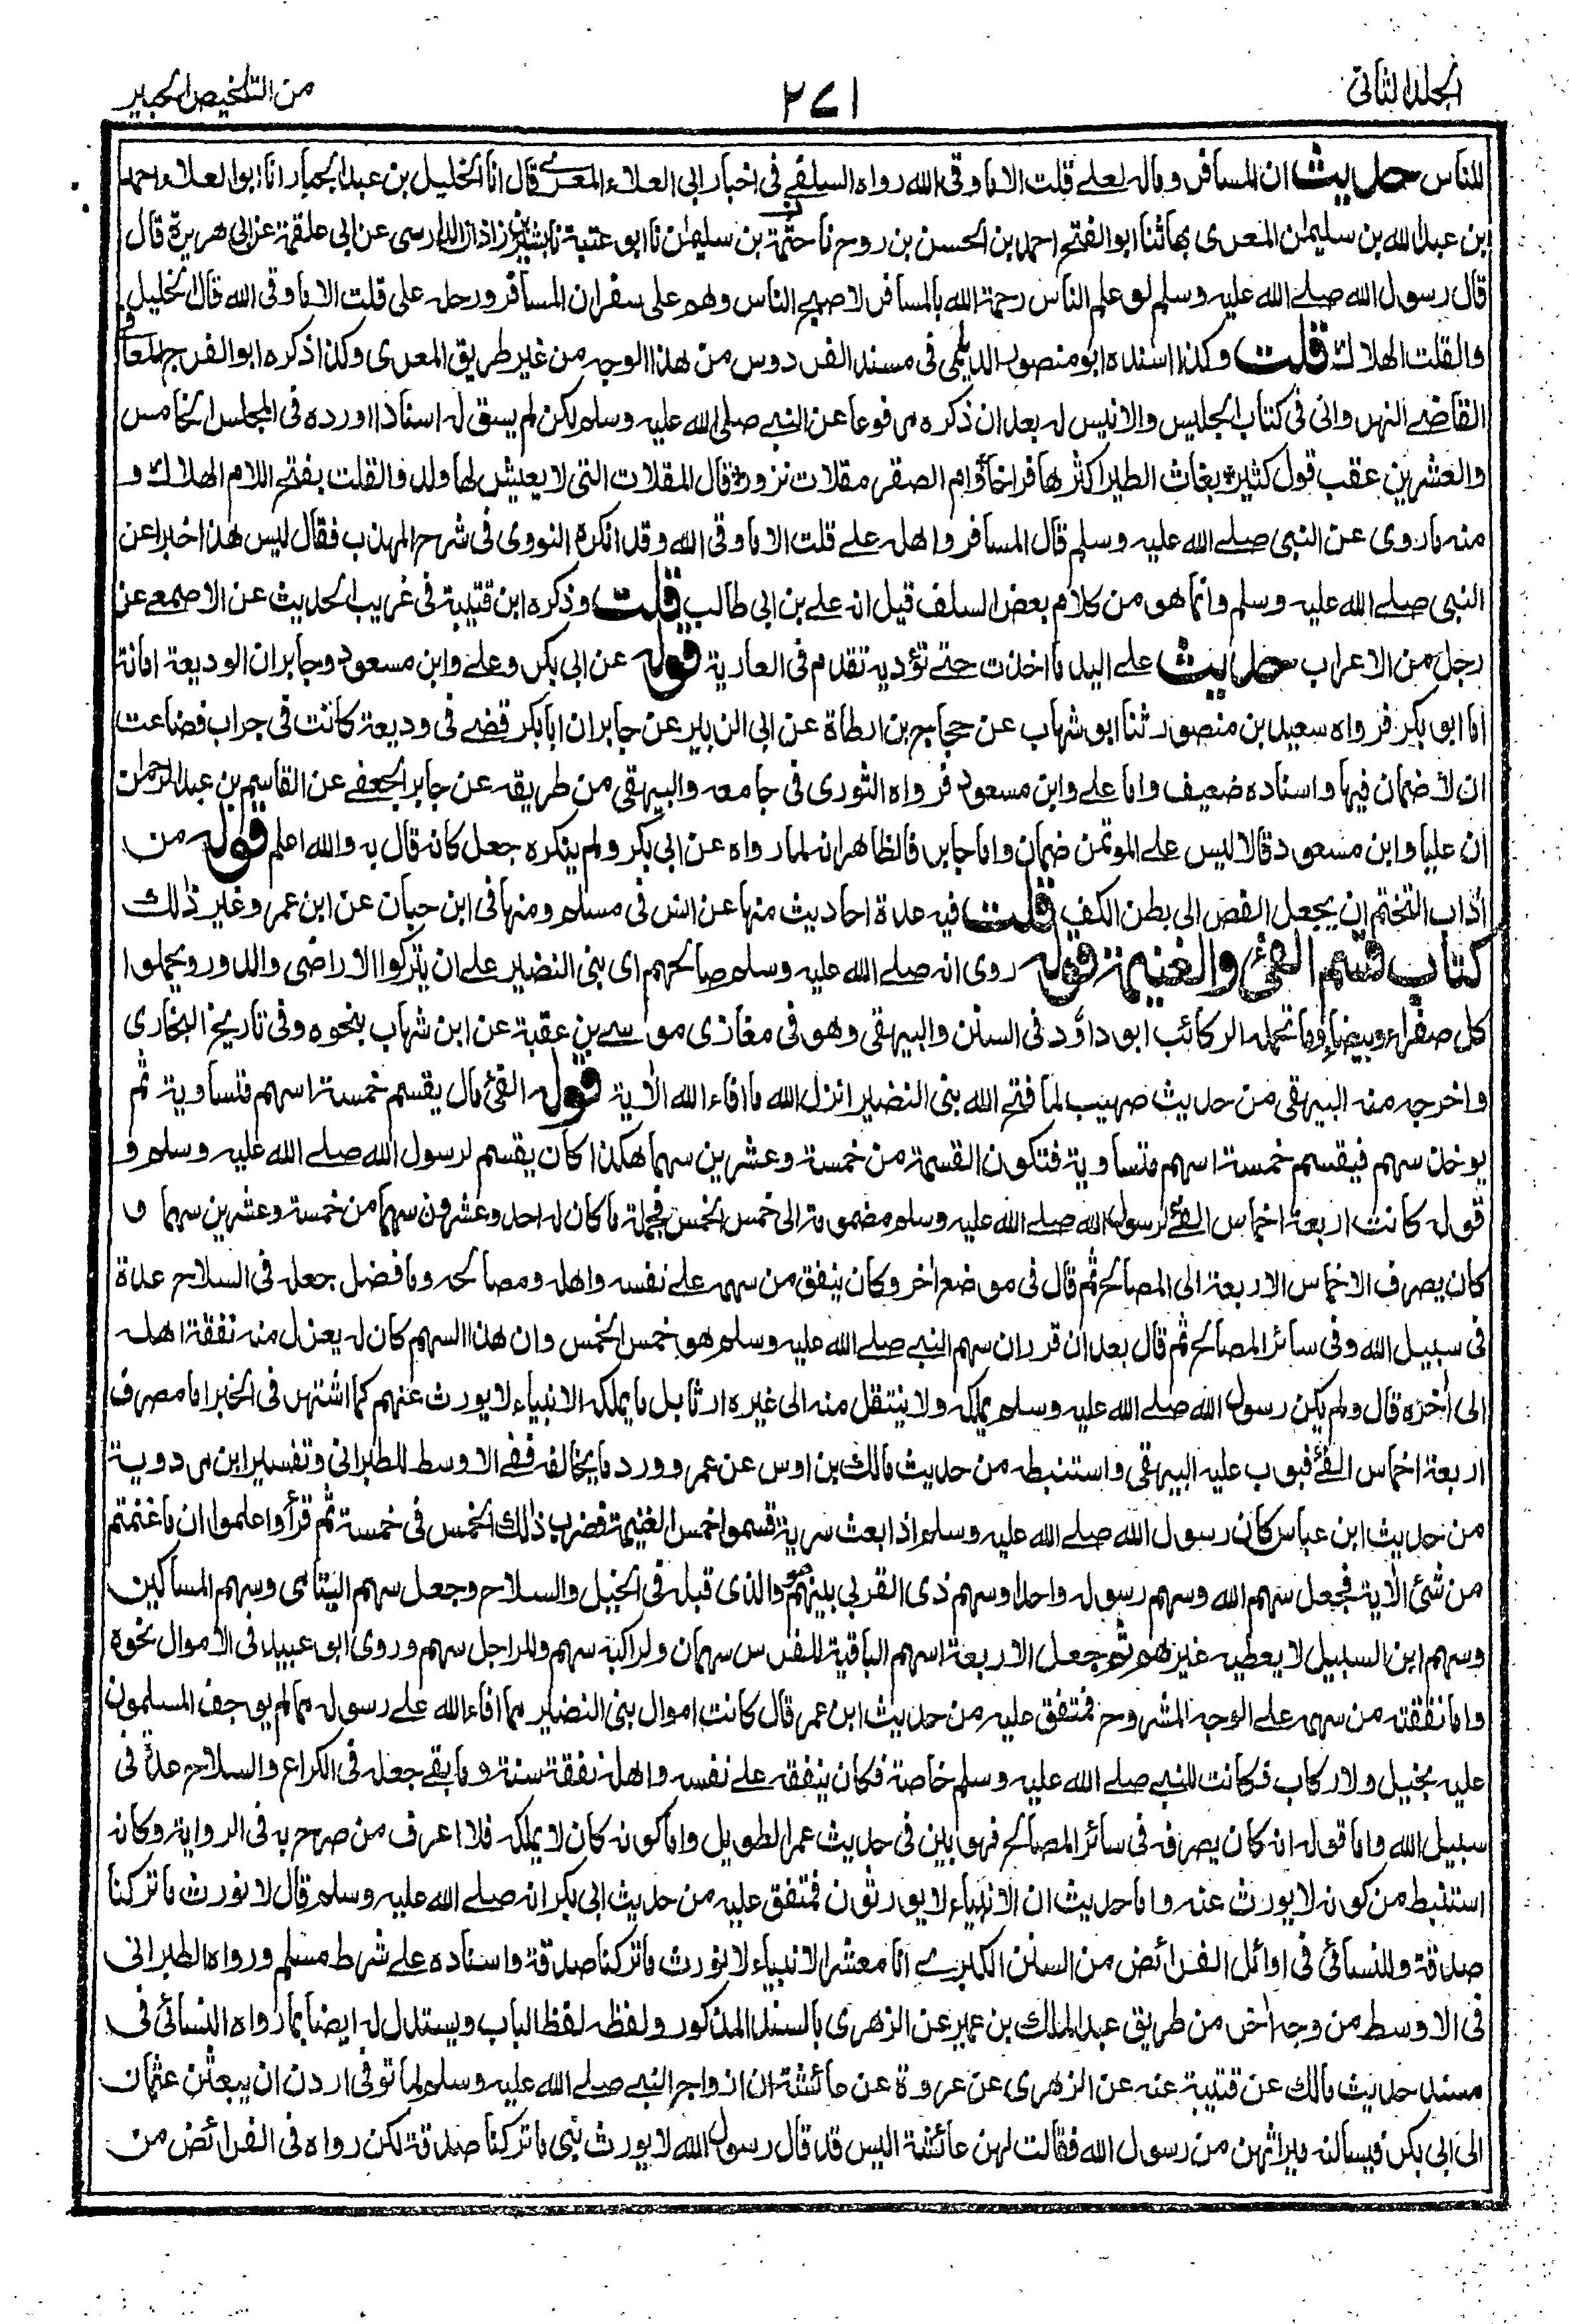 الجلد الثانی
٢٧١
من التلخيص الحبير
للناس حديث ان المسافر وماله لعلے قلت الا ما وقى الله رواه السلفے فی اخبار ابی العلاء المعرے قال انا الخليل بن عبد الجبار انا ابو العلاء احمد
بن عبد الله بن سليمان المعری بها ثنا ابو الفتح احمد بن الحسن بن روح نا خثمة بن سليمان نا ابو عتبة نا بشير بن زاذان الدارسی عن ابی علقمة عن ابی هريرة قال
قال رسول الله صلے الله عليه وسلم لو علم الناس رحمة الله بالمسافر لاصبح الناس وهم على سفر ان المسافر ورحله علی قلت الا ما وقی الله قال الخليل
والقلت الهلاك قلت وكذا اسنده ابو منصور الديلمی فی مسند الفردوس من هذا الوجه من غير طريق المعری وكذا ذكره ابو الفرج المعافی
القاضے النهروانی فی كتاب الجليس والانيس له بعد ان ذكره مرفوعا عن النبے صلی الله عليه وسلم لكن لم يسق له اسنادا اورده فی المجلس الخامس
والعشرين عقب قول كثير بغاث الطير اكثرها فراخا وام الصقر مقلات نزور قال المقلات التی لا يعيش لها ولد والقلت بفتح اللام الهلاك و
منه ما روی عن النبی صلے الله عليه وسلم قال المسافر واهله علے قلت الا ما وقی الله وقد انكره النووی فی شرح المهذب فقال ليس هذا خبرا عن
النبی صلے الله عليه وسلم وانما هو من كلام بعض السلف قيل انه علے بن ابی طالب قلت وذكره ابن قتيبة فی غريب الحديث عن الاصمعے عن
رجل من الاعراب حديث علے اليد ما اخذت حتے تؤديه تقدم فی العارية قوله عن ابی بكر وعلے وابن مسعود وجابر ان الوديعة امانة
اما ابو بكر فرواه سعيد بن منصور ثنا ابو شهاب عن حجاج بن ارطاة عن ابی الزبير عن جابر ان ابا بكر قضے فی وديعة كانت فی جراب فضاعت
ان لا ضمان فيها واسناده ضعيف واما علے وابن مسعود فرواه الثوری فی جامعه والبيهقی من طريقه عن جابر الجعفے عن القاسم بن عبد الرحمان
ان عليا وابن مسعود قالا ليس علے الموتمن ضمان واما جابر فالظاهر انه لما رواه عن ابی بكر ولم ينكره جعل كانه قال به والله اعلم قوله من
اداب التختم ان يجعل الفص الی بطن الكف قلت فيه عدة احاديث منها عن انس فی مسلم ومنها فی ابن حبان عن ابن عمر وغير ذلك
كتاب قسم الفئ والغنيمة قوله روی انه صلے الله عليه وسلم صالحهم ای بنی النضير علے ان يتركوا الاراضی والدور ويحملوا
كل صفراء وبيضاء وما تحمله الركائب ابو داؤد فی السنن والبيهقی وهو فی مغازی موسے بن عقبة عن ابن شهاب بنحوه وفی تاريخ البخاری
واخرجه منه البيهقی من حديث صهيب لما فتح الله بنی النضير انزل الله ما افاء الله الاية قوله الفئ مال يقسم خمسة اسهم متساوية ثم
يوخذ سهم فيقسم خمسة اسهم متساوية فتكون القسمة من خمسة وعشرين سهما هكذا كان يقسم لرسول الله صلے الله عليه وسلم و
قوله كانت اربعة اخماس الفئے لرسول الله صلے الله عليه وسلم مضمومة الی خمس الخمس فجملة ما كان له احد وعشرون سهما من خمسة وعشرين سهما و
كان يصرف الاخماس الاربعة الی المصالح ثم قال فی موضع اخر وكان ينفق من سهمه علے نفسه واهله ومصالحه وما فضل جعله فی السلاح عدة
فی سبيل الله وفی سائر المصالح ثم قال بعد ان قرر ان سهم النبے صلے الله عليه وسلم هو خمس الخمس وان هذا السهم كان له يعزل منه نفقة اهله
الی اخره قال ولم يكن رسول الله صلے الله عليه وسلم يملكه ولا ينتقل منه الی غيره ارثا بل ما يملكه الانبياء لا يورث عنهم كما اشتهر فی الخبر اما مصرف
اربعة اخماس الفئے فبوب عليه البيهقی واستنبطه من حديث مالك بن اوس عن عمر وورد ما يخالفه ففے الاوسط للطبرانی وتفسير ابن مردوية
من حديث ابن عباس كان رسول الله صلے الله عليه وسلم اذا بعث سرية قسموا خمس الغنيمة فضرب ذلك الخمس فی خمسة ثم قرأ واعلموا ان ما غنمتم
من شئ الاية فجعل سهم الله وسهم رسوله واحدا وسهم ذی القربی بينهم هو والذی قبله فی الخيل والسلاح وجعل سهم اليتامی وسهم المساكين
وسهم ابن السبيل لا يعطيه غيرهم ثم جعل الاربعة اسهم الباقية للفرس سهمان ولراكبه سهم وللراجل سهم وروی ابو عبيد فی الاموال نحوه
واما نفقته من سهمه علے الوجه المشروح فمتفق عليه من حديث ابن عمر قال كانت اموال بنی النضير مما افاء الله علے رسوله مما لم يوجف المسلمون
عليه بخيل ولا ركاب فكانت للنبے صلے الله عليه وسلم خاصة فكان ينفقه علے نفسه واهله نفقة سنة وما بقے جعله فی الكراع والسلاح عدة فی
سبيل الله واما قوله انه كان يصرفه فی سائر المصالح فهو بين فی حديث عمر الطويل واما كونه كان لا يملكه فلا اعرف من صرح به فی الرواية وكانه
استنبط من كونه لا يورث عنه واما حديث ان الانبياء لا يورثون فمتفق عليه من حديث ابی بكر انه صلے الله عليه وسلم قال لا نورث ما تركنا
صدقة وللنسائی فی اوائل الفرائض من السنن الكبرے انا معشر الانبياء لا نورث ما تركنا صدقة واسناده علے شرط مسلم ورواه الطبرانی
فی الاوسط من وجه اخر من طريق عبد الملك بن عمير عن الزهری بالسند المذكور ولفظه لفظ الباب ويستدل له ايضا بما رواه النسائی فی
مسند حديث مالك عن قتيبة عنه عن الزهری عن عروة عن عائشة ان ازواج النبے صلے الله عليه وسلم لما توفی اردن ان يبعثن عثمان
الی ابی بكر فيسالنه ميراثهن من رسول الله فقالت لهن عائشة اليس قد قال رسول الله لا يورث نبی ما تركنا صدقة لكن رواه فی الفرائض من